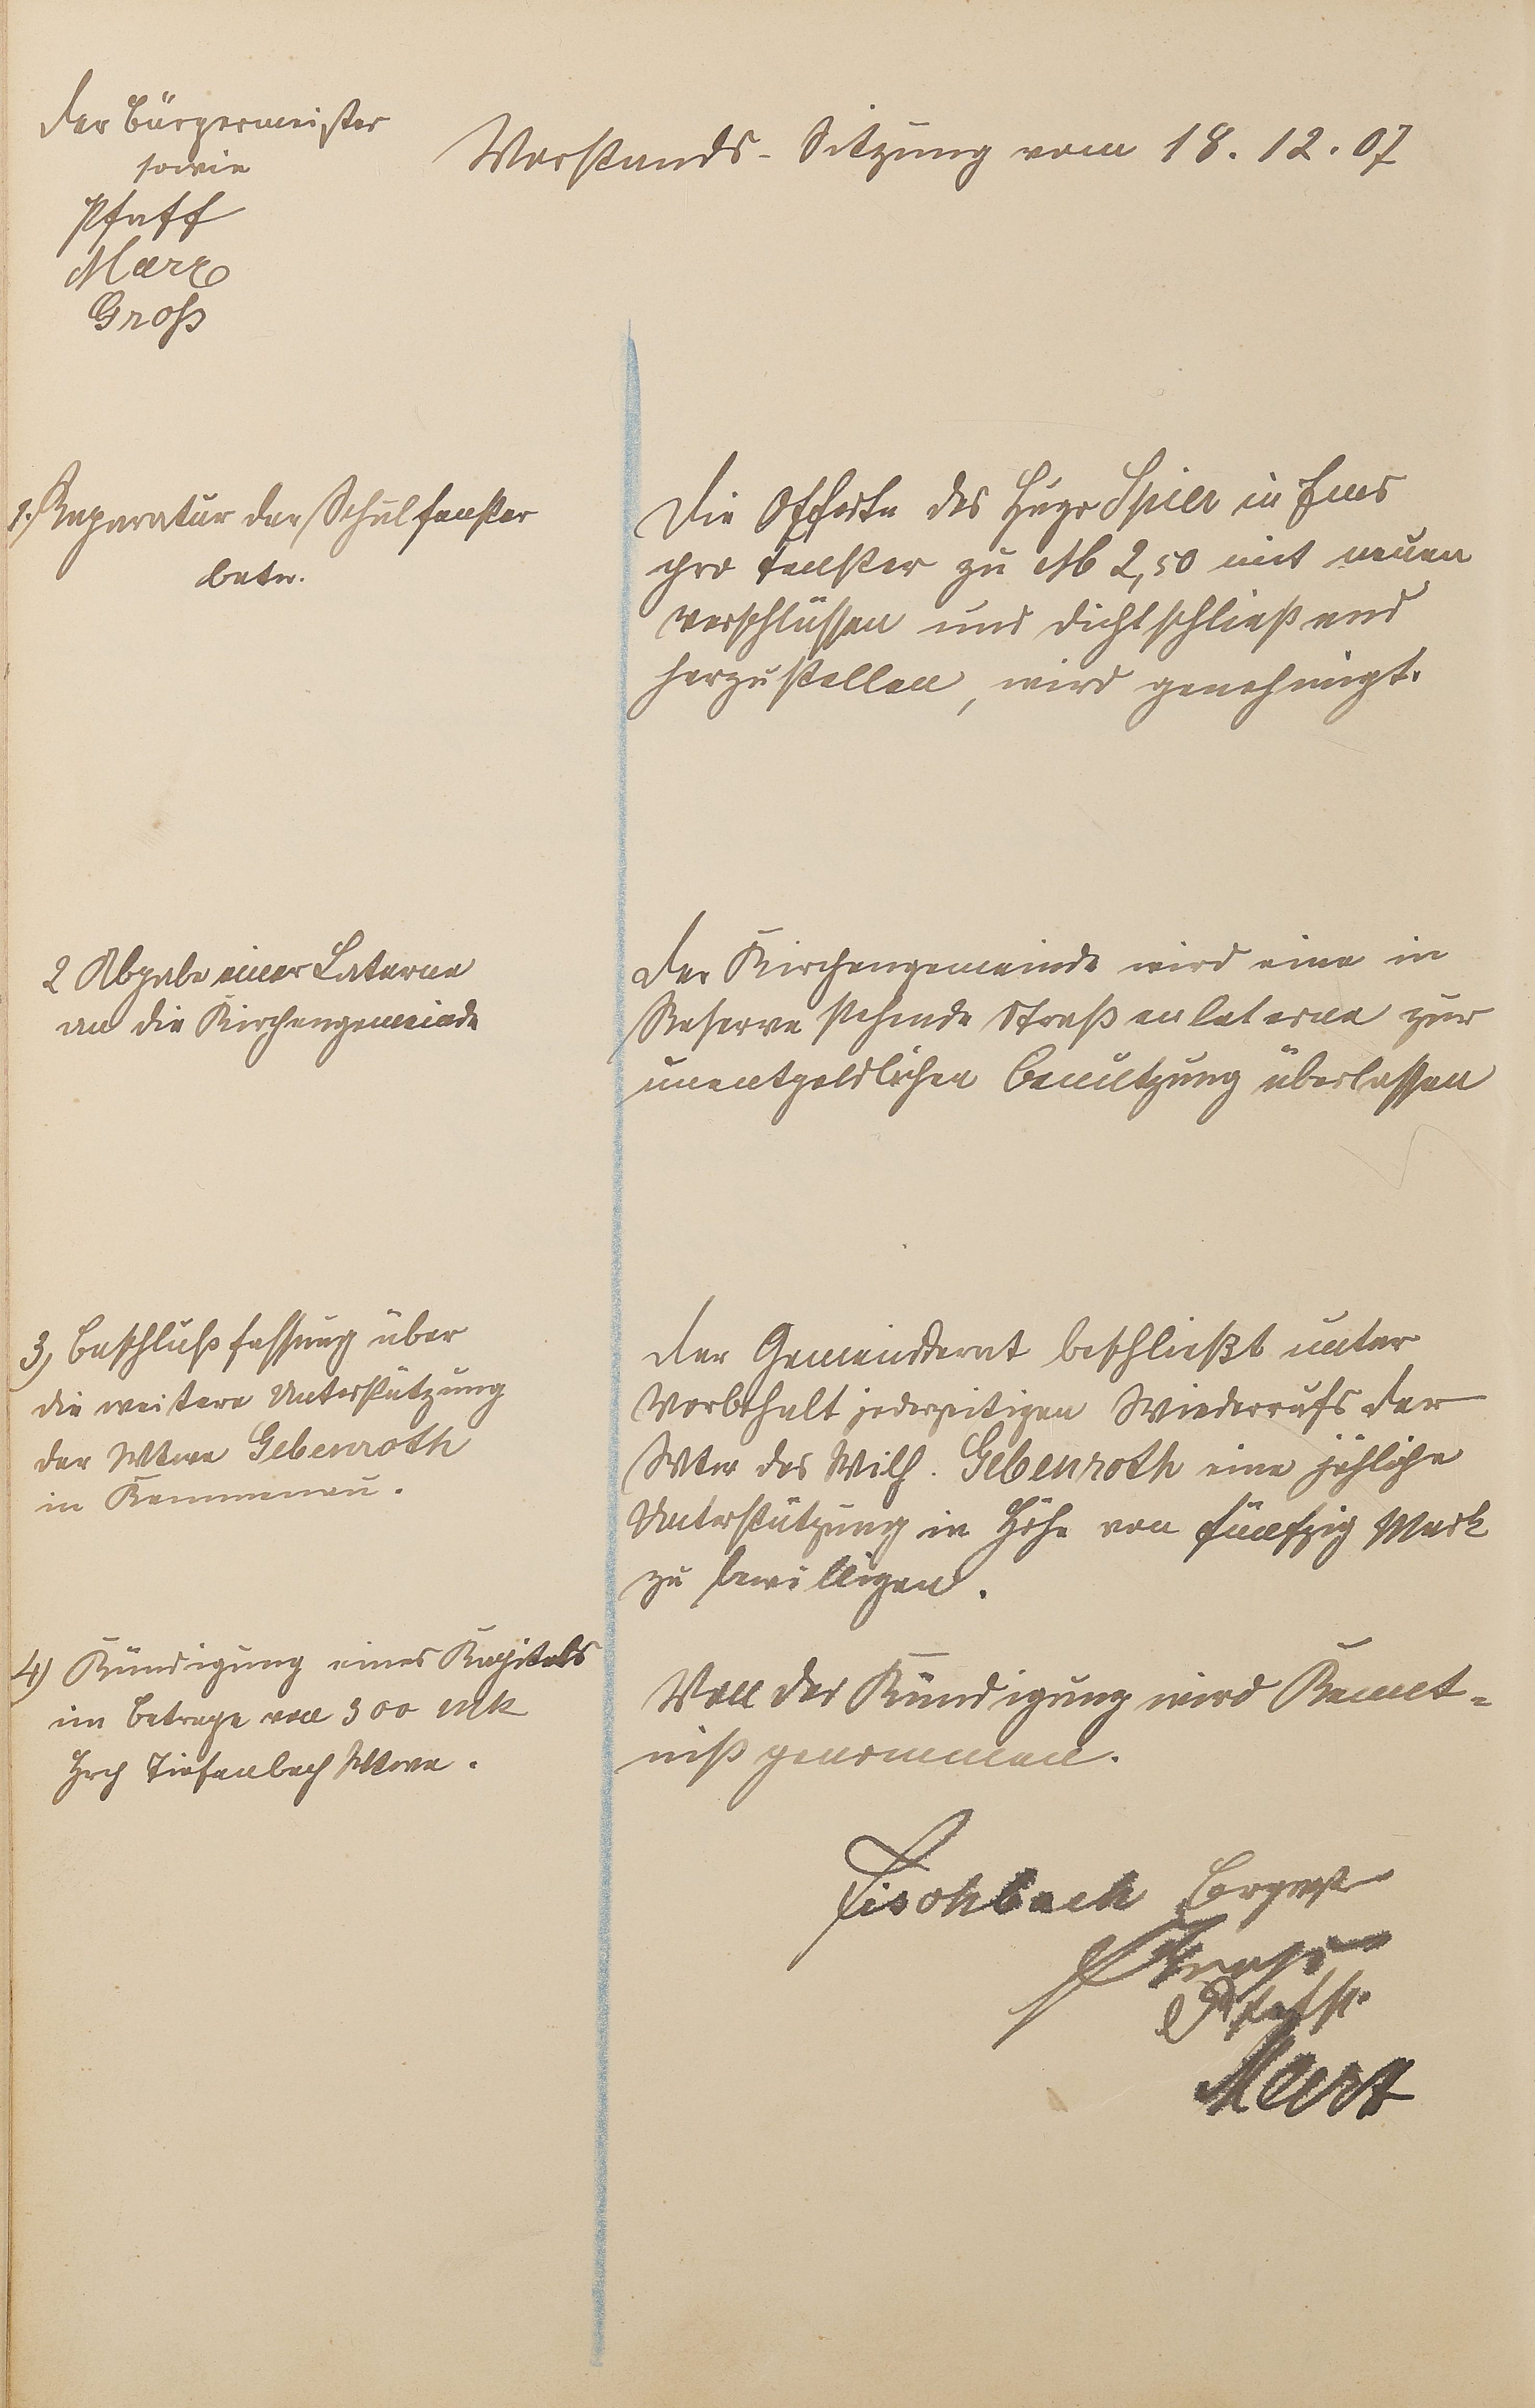 Der Bürgermeister
sowie
Pfaff
Marx
Groß
Vorstands-Sitzung vom 18.12.07
1. Reparatur der Schulfenster
betr.
Die Offerte des Hugo Spier in Ems
pro Fenster zu M 2,50 mit neuen
verschlüssen und dichtschließend
herzustellen, wird genehmigt.
2 Abgabe einer Laterne
an die Kirchengemeinde
Der Kirchengemeinde wird eine in
Reserve stehende Straßenlaterne zur
unentgeldlichen Benutzung überlassen
3, Beschlußfassung über
die weitere Unterstützung
der Wtwe Gebenroth
in Kemmenau.
Der Gemeinderat beschließt unter
Vorbehalt jederzeitigen Wiederrufs der
Wtw des Wilh. Gebenroth eine jähliche
Unterstützung in Höhe von fünfzig Mark
zu bewilligen.
4) Kündigung eines Kapitals
im Betrage von 300 Mk
Hrch Tiefenbach Wtwe.
Von der Kündigung wird Kennt-
niß genommen.
Fischbach Bürgmstr
Pfaff.
Marx